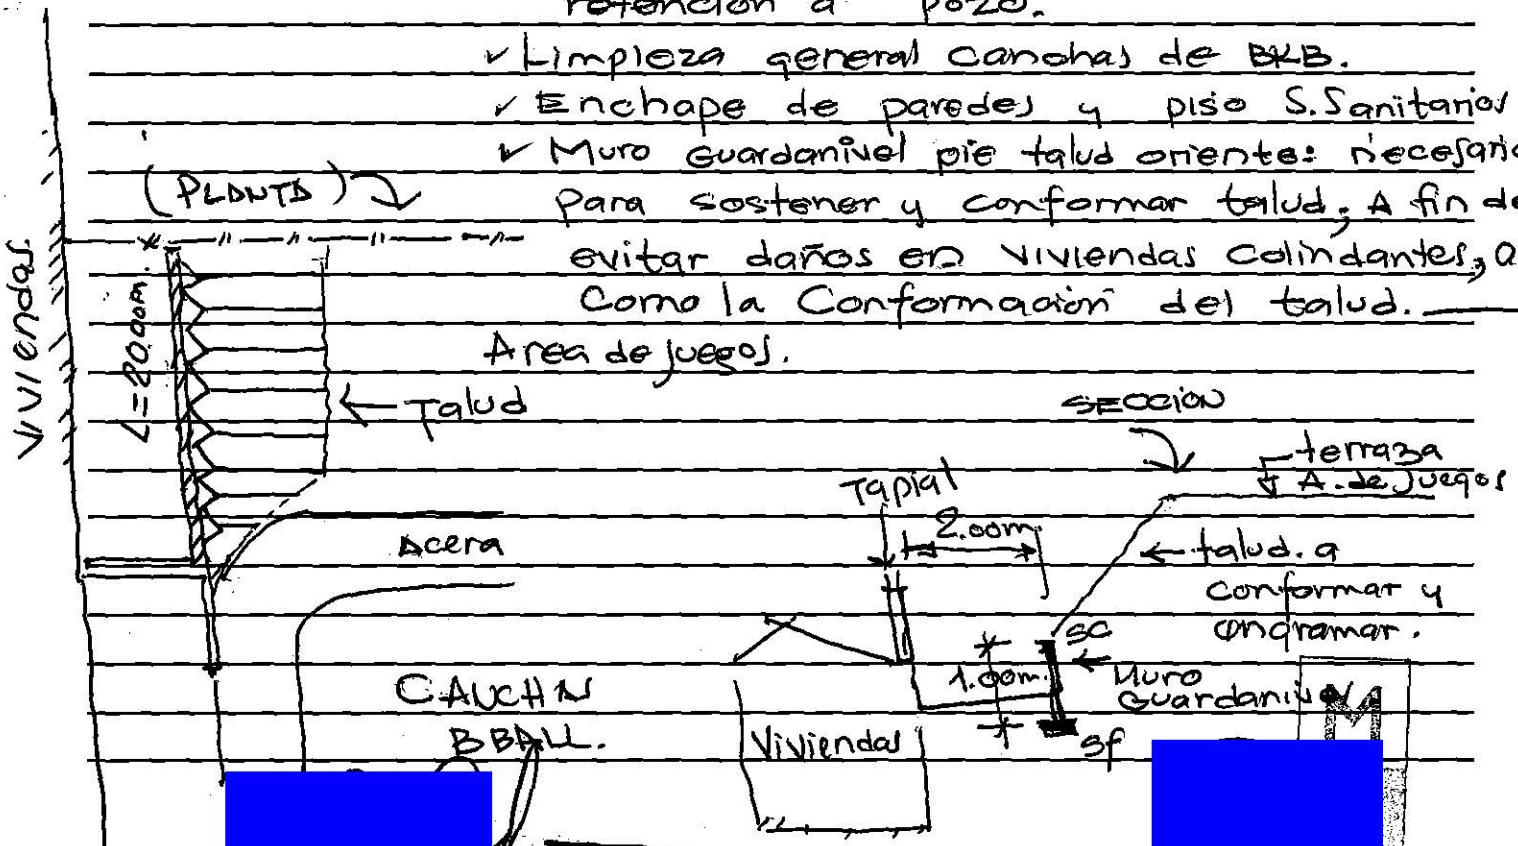 retención a pozo.
✓ Limpieza general Canchas de BKB.
✓ Enchape de paredes y piso S.Sanitarios
✓ Muro Guardanivel pie talud oriente: necesario
para sostener y conformar talud; A fin de
evitar daños en viviendas Colindantes, a
Como la Conformación del talud.
Area de juegos.
(PLANTA)
Viviendas.
L=20.00m.
← Talud
Acera
CANCHA
BBALL.
SECCION
terraza
A. de Juegos
Tapial
2.00m.
← talud. a
conformar y
engramar.
SC
1.00m.
← Muro
Guardanivel
Sf
Viviendas
M